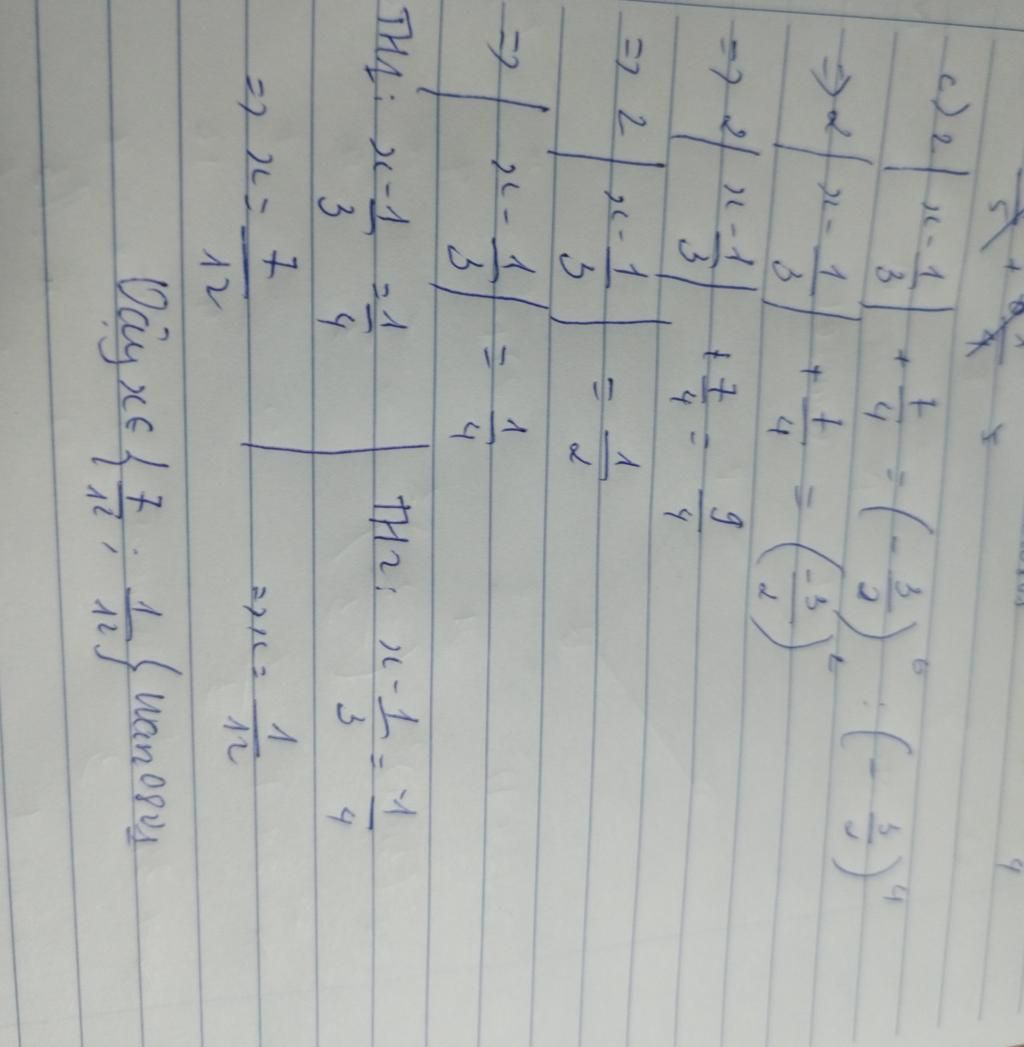 c) 2|x - 1/3| + 7/4 = (-3/2)^6 : (-3/2)^4
=> 2|x - 1/3| + 7/4 = (-3/2)^2
=> 2|x - 1/3| + 7/4 = 9/4
=> 2|x - 1/3| = 1/2
=> |x - 1/3| = 1/4
TH1: x - 1/3 = 1/4 | TH2: x - 1/3 = -1/4
=> x = 7/12 | => x = 1/12
Vậy x ∈ {7/12; 1/12}